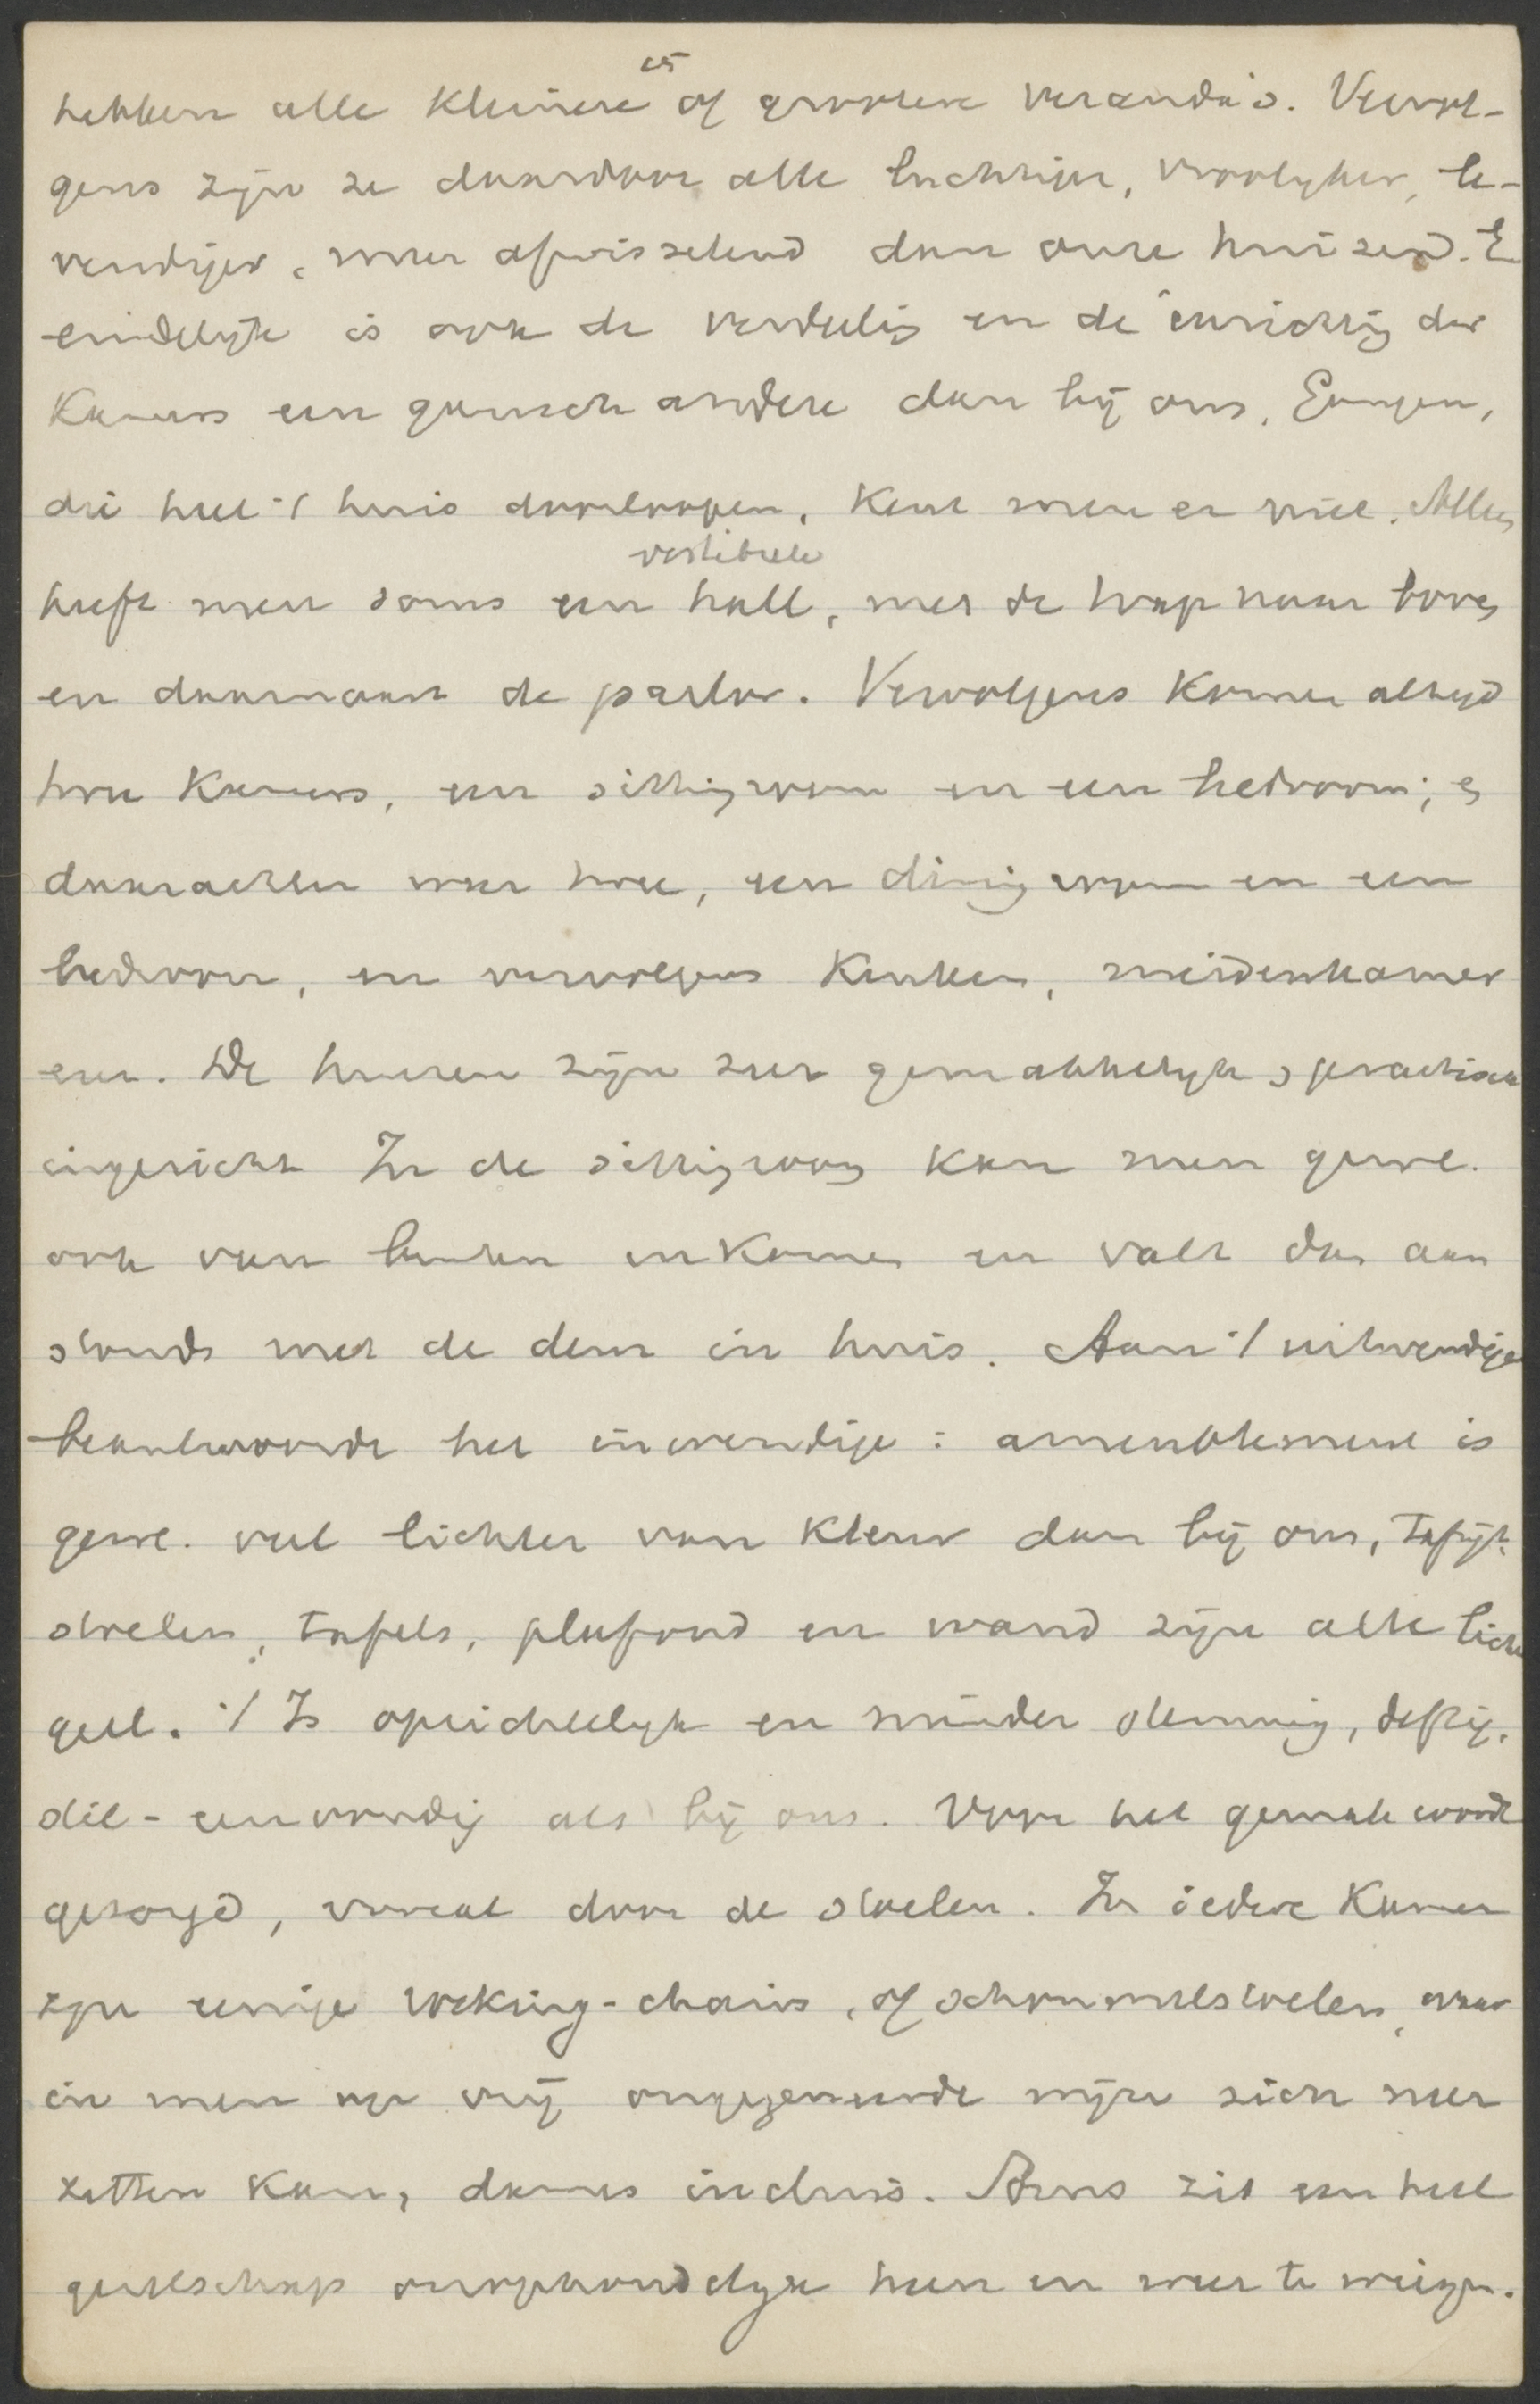 en
hebben alle kleinere of grootere veranda's. Vervol-
gens zijn ze daardoor alle luchtiger, vroolyker, le-
vendiger, meer afwisselend dan onze huizen. E
eindelyk is ook de verdeelig en de inrichtig der
kamers een gansch andere dan bij ons. Gangen,
die heel 't huis doorloopen, kent men er niet. Alleen
vestibule
heeft men soms een hall, met de trap naar boven
en daarnaast de parlor. Vervolgens komen altyd
twee kamers, een sittingroom en een bedroom; en
daarachter weer twee, een diningroom en een
bedroom, en vervolgens keuken, meidenkamer
enz. De huizen zijn zeer gemakkelyk, practisch
ingericht In de sittingroom kan men gewl.
ook van buiten inkomen en valt dan aan
stonds met de deur in huis. Aan 't uitwendige
beantwoordt het inwendige: ameublement is
gewl. veel lichter van kleur dan bij ons, tapijt,
stoelen, tafels, plafond en wand zijn alle licht
geel. 't Is opzichtelyk en minder stemmig, deftig,
stil-eenvoudig als bij ons. Voor het gemak wordt
gezorgd, vooral door de stoelen. In iedere kamer
zijn eenige rocking-chairs, of schommelstoelen, waar
in men op vrij ongegeneerde wijze zich neer
zetten kan, dames incluis. Soms zit een heel
gezelschap onophoudelyk heen en weer te wiegen.